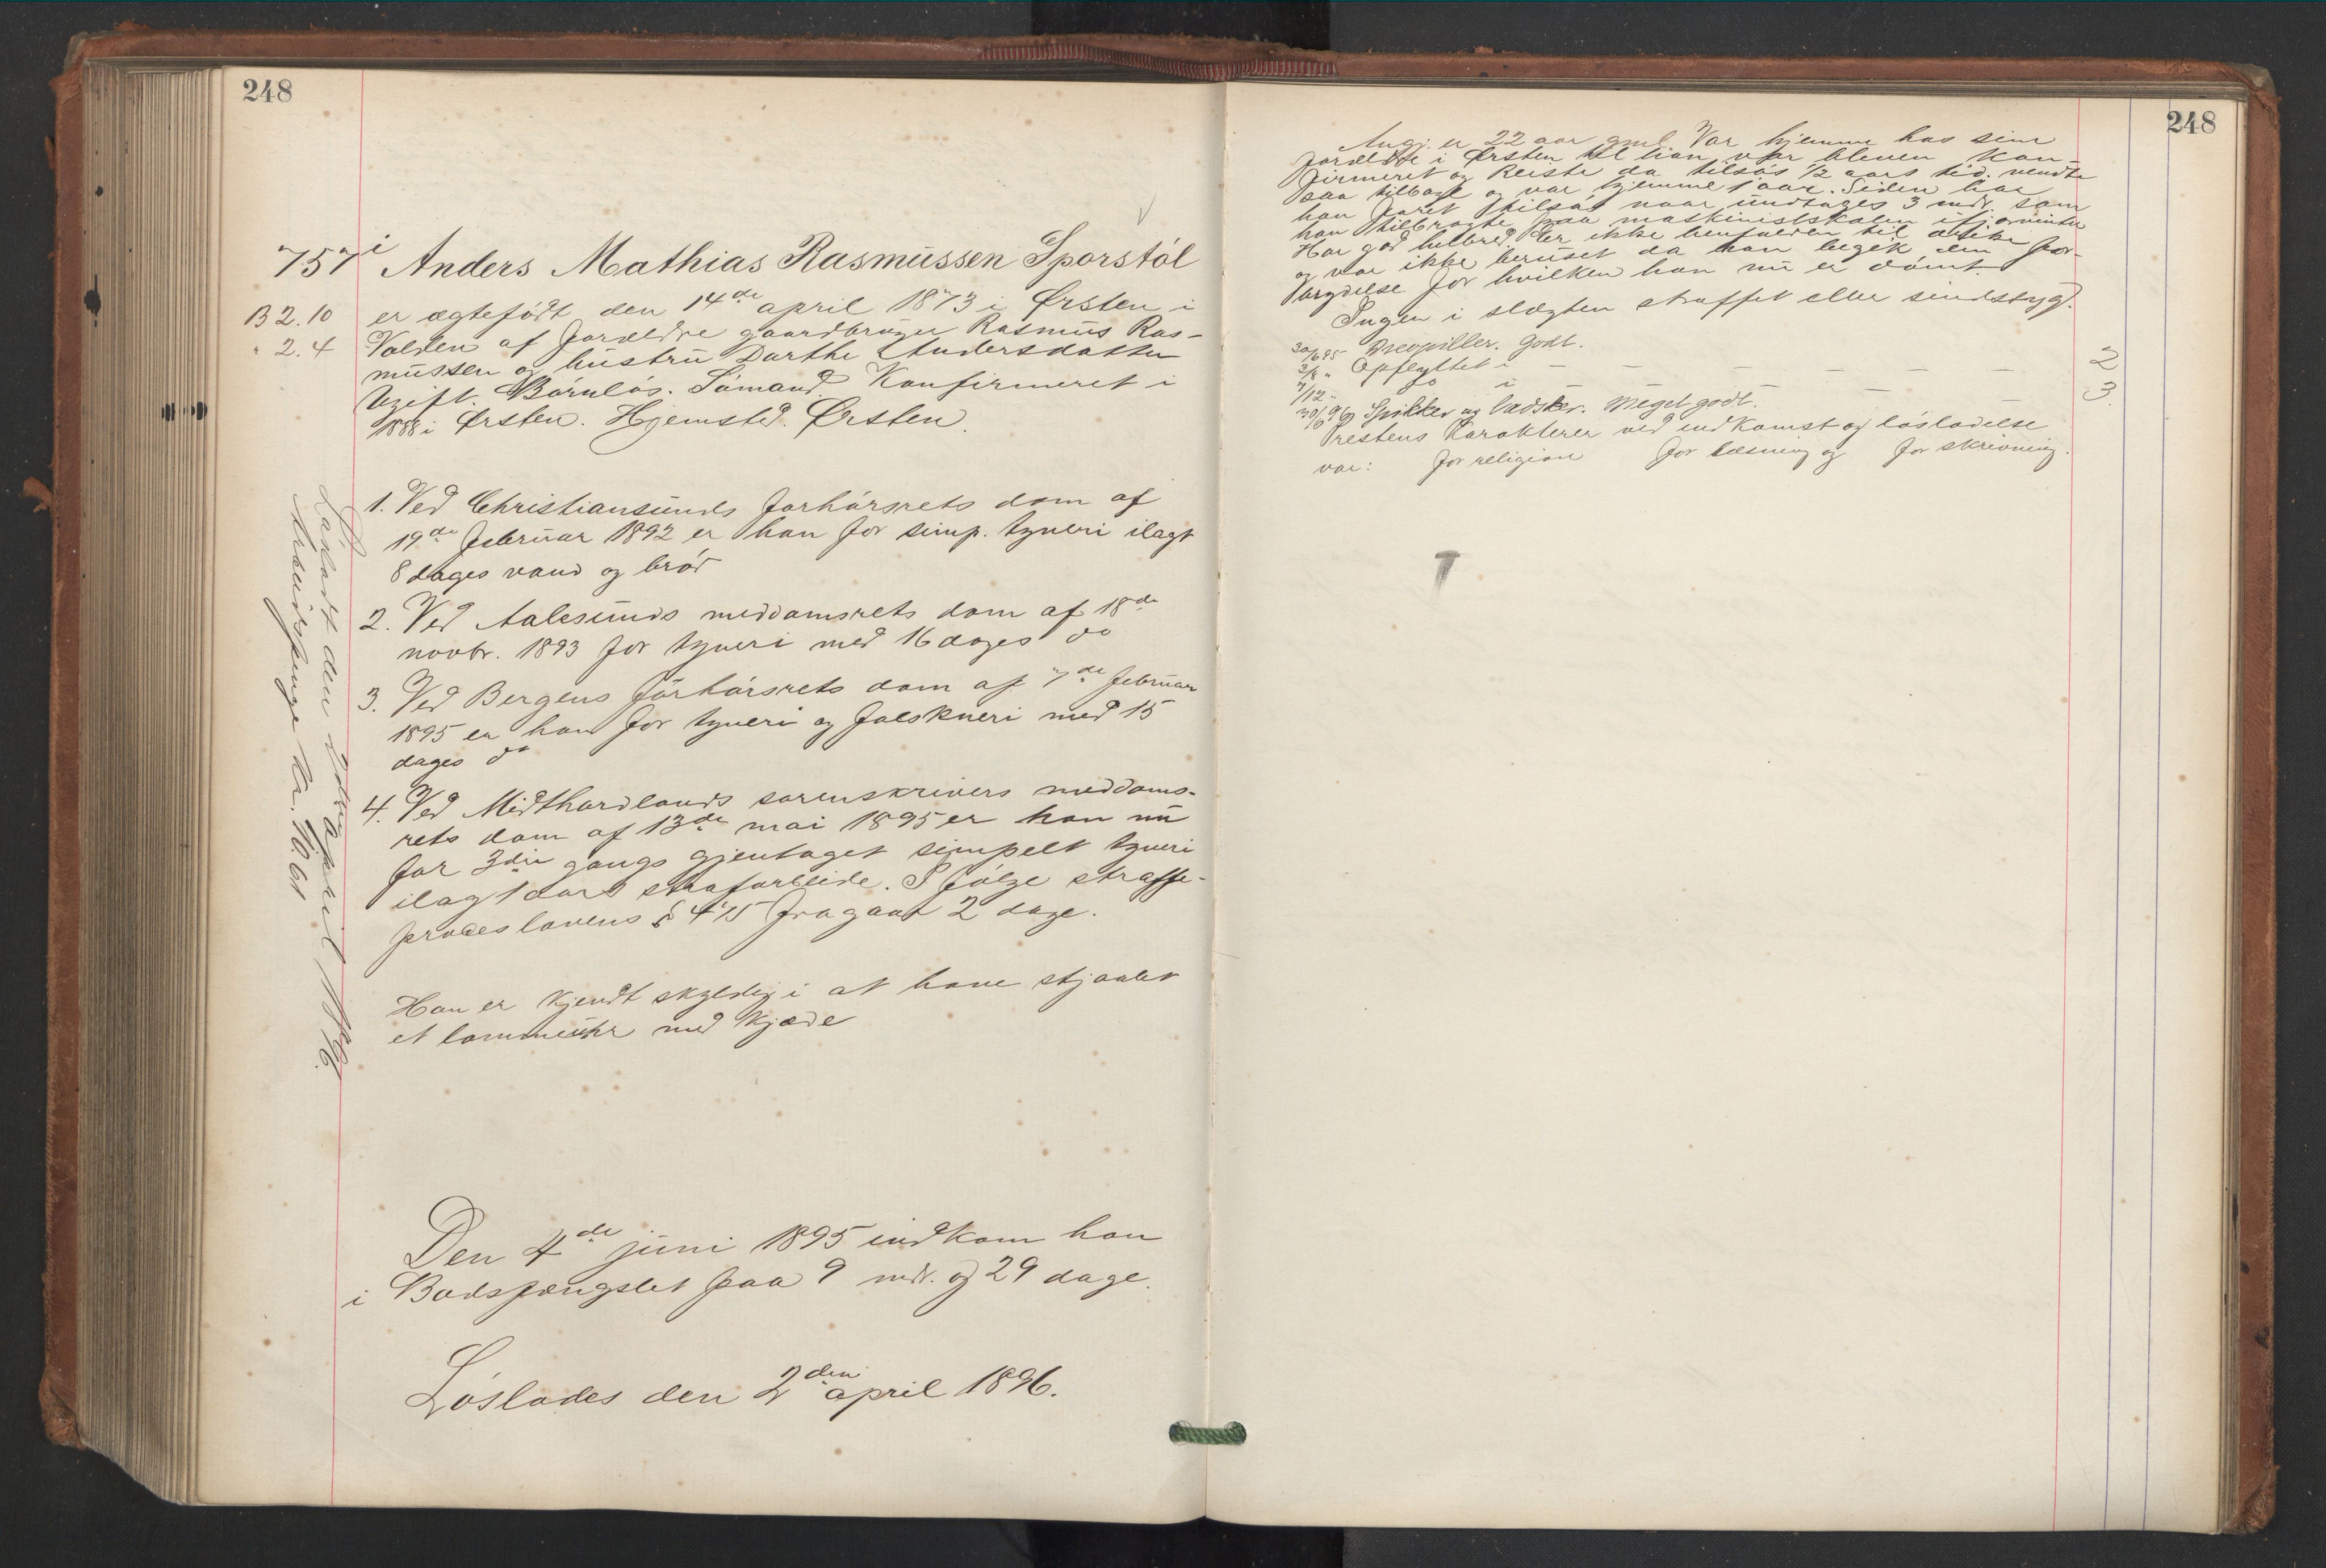 248
757 i Anders Mathias Rasmussen Sporstöl
B 2.10 er ægtefödt den 14de april 1873 i Ørsten i
" 2.4 Volden af forældre gaardbruger Rasmus Ras-
mussen og hustru Darthe Andersdatter
Ugift. Börnlös. Sömand. Konfirmeret i
1888 i Ørsten. Hjemsted. Ørsten.
1. Ved Christiansunds forhörsrets dom af
19de februar 1892 er han for simp. tyveri ilagt
8 dages vand og bröd
2. Ved Aalesunds meddomsrets dom af 18de
novbr. 1893 for tyveri med 16 dages do
3. Ved Bergens forhörsrets dom af 7de februar
1895 er han for tyveri og falskneri med 15
dages do
4. Ved Midthordlands sorenskrivers meddoms-
rets dom af 13de mai 1895 er han nu
for 3die gangs gjentaget simpelt tyveri
ilagt 1 aars strafarbeide. I fölge straffe-
proceslovens § 475 fragaar 2 dage.
Han er kjendt skyldig i at have stjaalet
et lommeuhr med kjæde
Den 4de juni 1895 indkom han
i Bodsfængslet paa 9 mdr. og 29 dage.
Löslades den 2den april 1896.
Lösladt den 2den april 1896.
Arbeidspenge kr. 10.61
248
Angj. er 22 aar gml. Var hjemme hos sine
forældre i Ørsten til han var bleven kon-
firmeret og reiste da tilsös 1/2 aars tid. vendte
saa tilbage og var hjemme 1 aar. Siden har
han faret tilsös naar undtages 3 mdr. som
han tilbragte paa maskinistskolen ifjorvinter
Har god helbred. Er ikke henfalden til drikk
og var ikke beruset da han begik den for-
brydelse for hvilken han nu er dömt.
Ingen i slægten straffet eller sindssyg.
30/6 95 Drevpiller. Godt.
2/8 " Opflyttet i — — — — — — 2
7/12 " do i — — — — — 3
30/3 96 Spikker og ladsker. Meget godt.
Prestens karakterer ved indkomst og lösladelse
var: for religion for læsning og for skrivning.
T